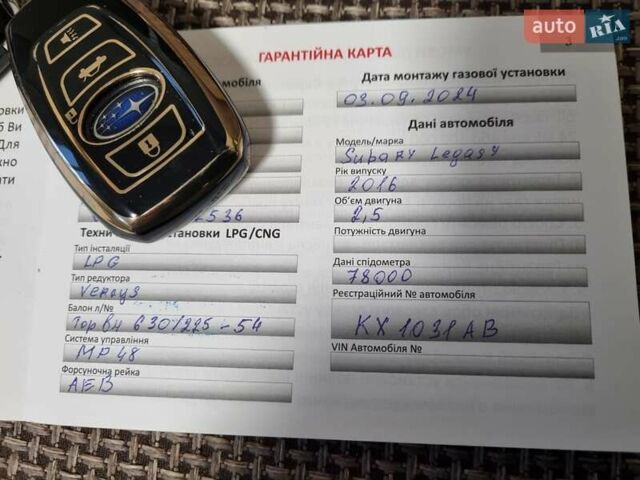 auto RIA.com
3
ГАРАНТІЙНА КАРТА
мобіля
овки
б Ви
Для
жно
ати
2536
Техні
становки LPG/CNG
Тип інсталяції
LPG
Тип редуктора
Балон л/№
630/225-54
Система управління
MP48
Форсуночна рейка
AEB
Дата монтажу газової установки
03.09.2024
Дані автомобіля
Модель/марка
Subaru Legacy
Рік випуску
2016
Об'єм двигуна
2,5
Потужність двигуна
Дані спідометра
78000
Реєстраційний № автомобіля
KX1031AB
VIN Автомобіля №